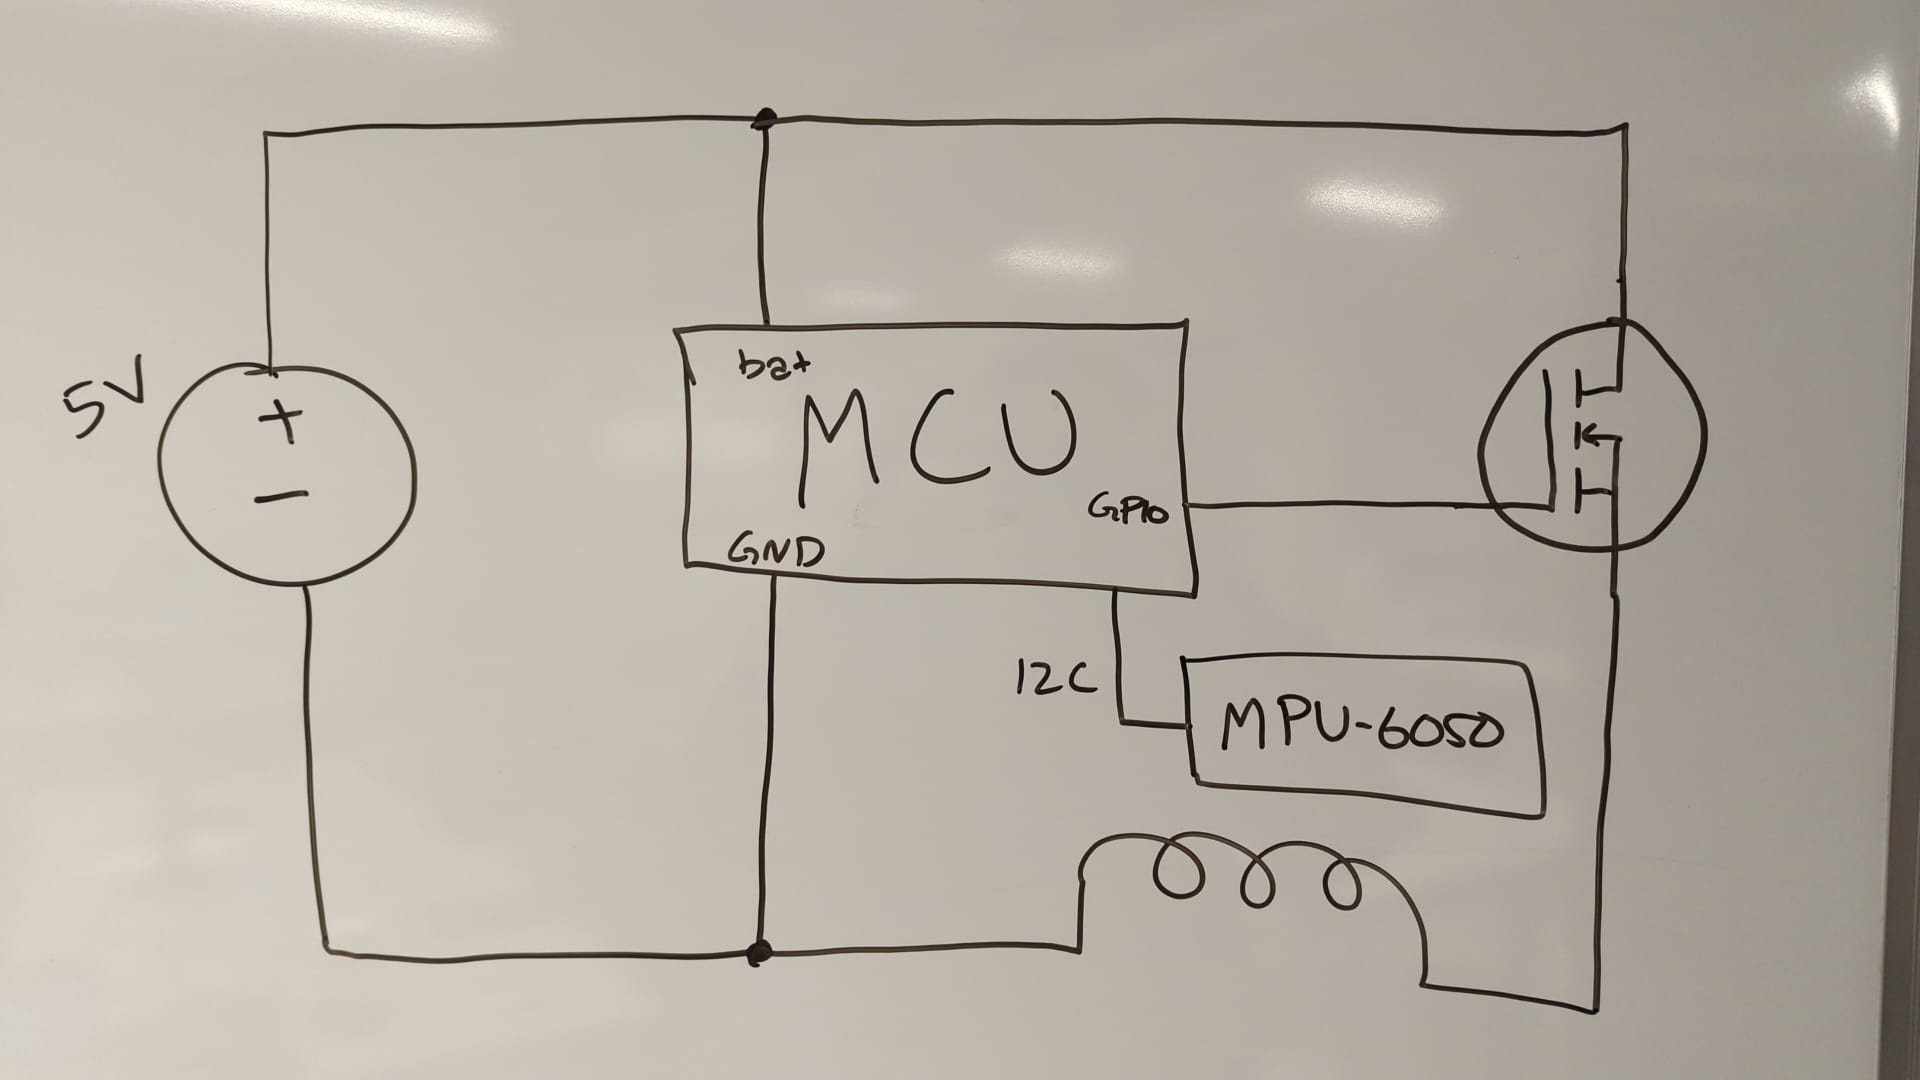 5V
+
−
bat
MCU
GPIO
GND
I2C
MPU-6050